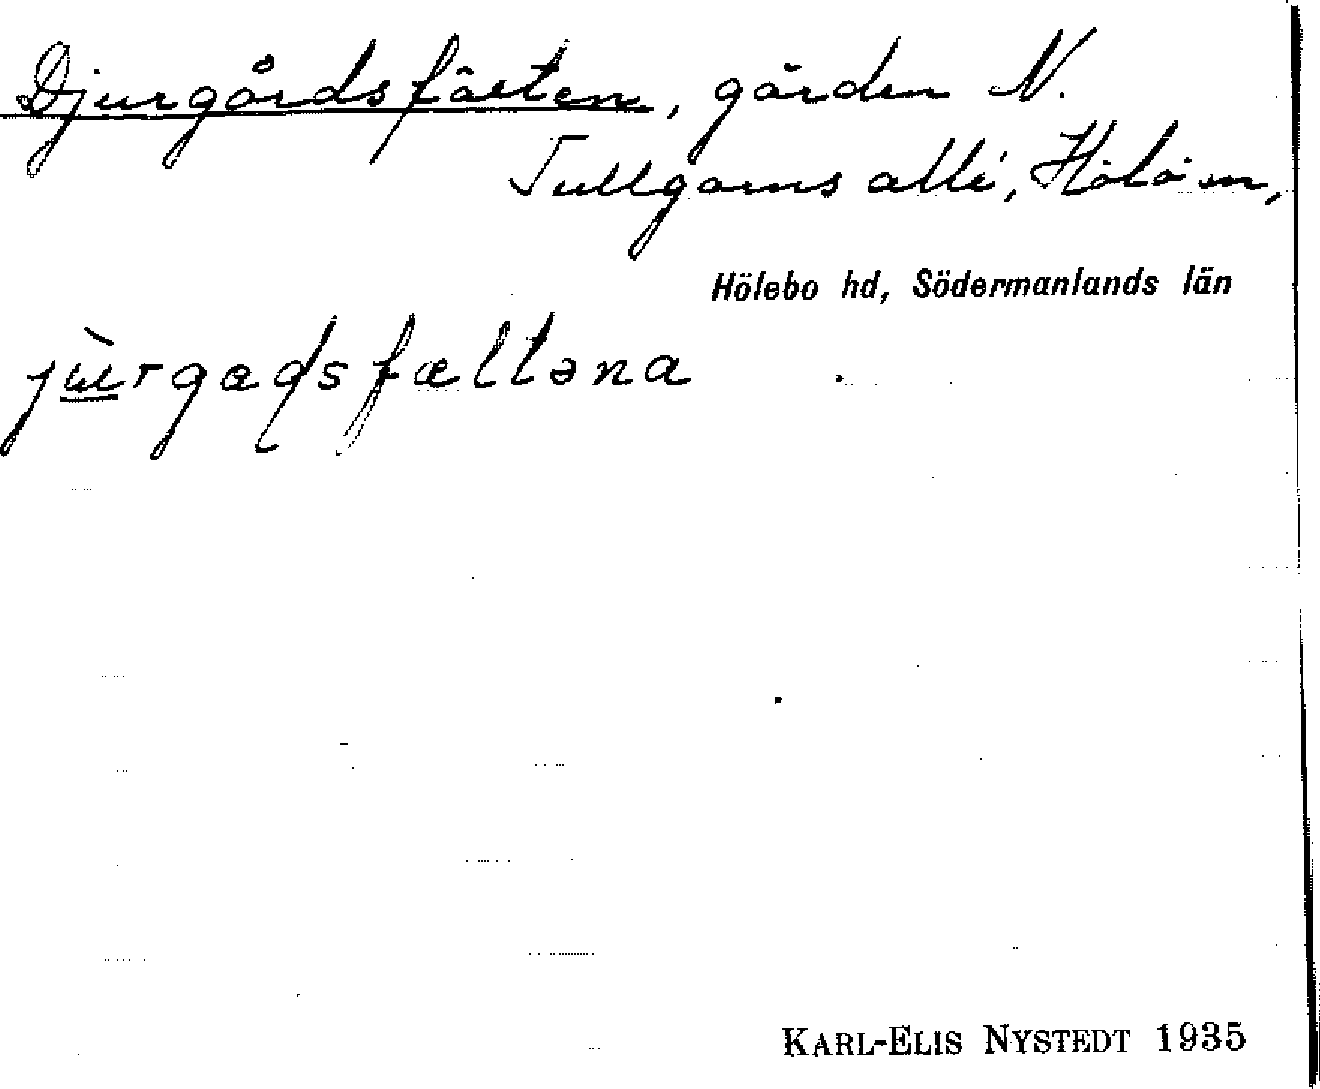 Djurgårdsfälten, gärden N.
Tullgarns allé, Hölö sn,
Hölebo hd, Södermanlands län
jùrgadsfæltəna
KARL-ELIS NYSTEDT 1935